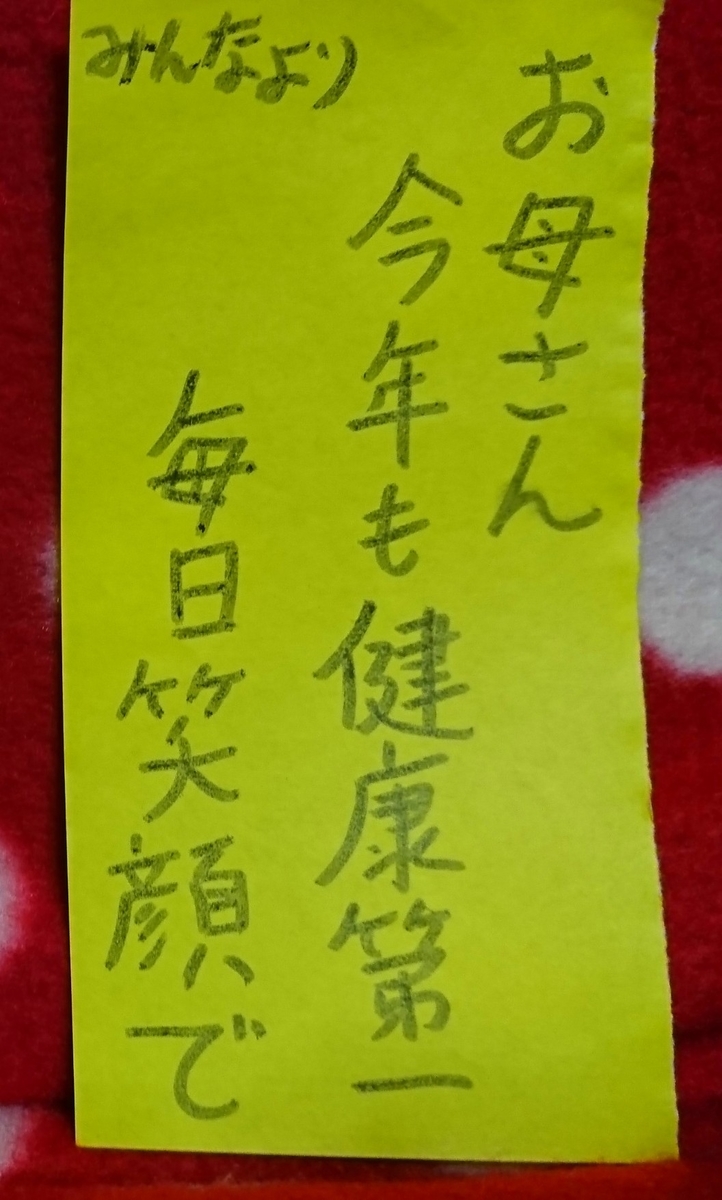 お母さん
今年も健康第一
毎日笑顔で
みんなより